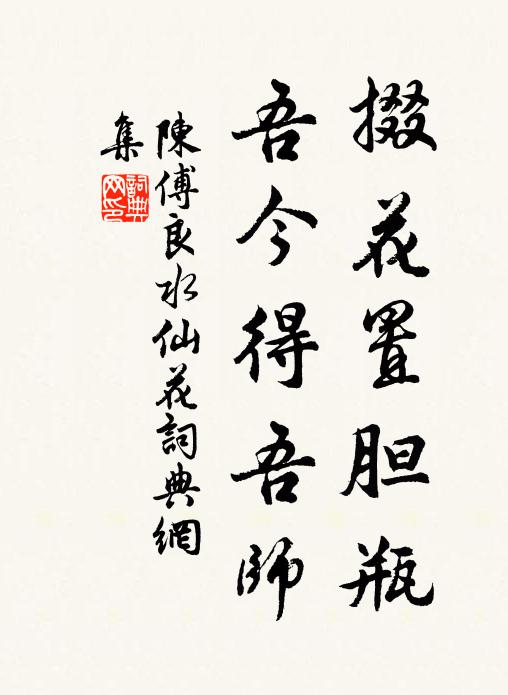 掇花置胆瓶
吾今得吾師
陳傅良水仙花詞典網
集
詞典網印